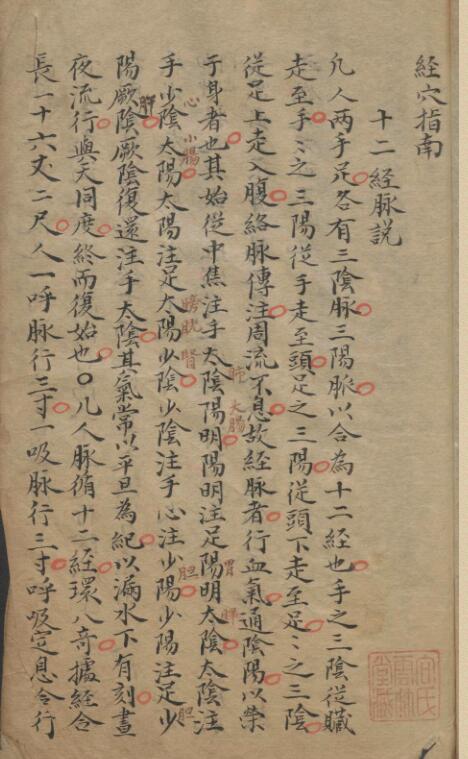 經穴指南
十二經脉説
凡人两手足各有三陰脉三陽脈以合為十二經也手之三陰從臟
走至手〻之三陽從手走至頭足之三陽從頭下走至足〻之三陰
從足上走入腹絡脉傳注周流不息故經脉者行血氣通陰陽以榮
于身者也其始從中焦注手太陰陽明陽明注足陽明太陰太陰注
手少陰太陽太陽注足太陽少陰少陰注手心注少陽少陽注足少
陽厥陰厥陰復還注手太陰其氣常以平旦為紀以漏水下有刻晝
夜流行與天同度終而復始也〇凡人脉循十二經環八奇據經合
長一十六丈二尺人一呼脉行三寸一吸脉行三寸呼吸定息合行
肺
大腸
胃
脾
心
小腸
膀胱
腎
胆
胆